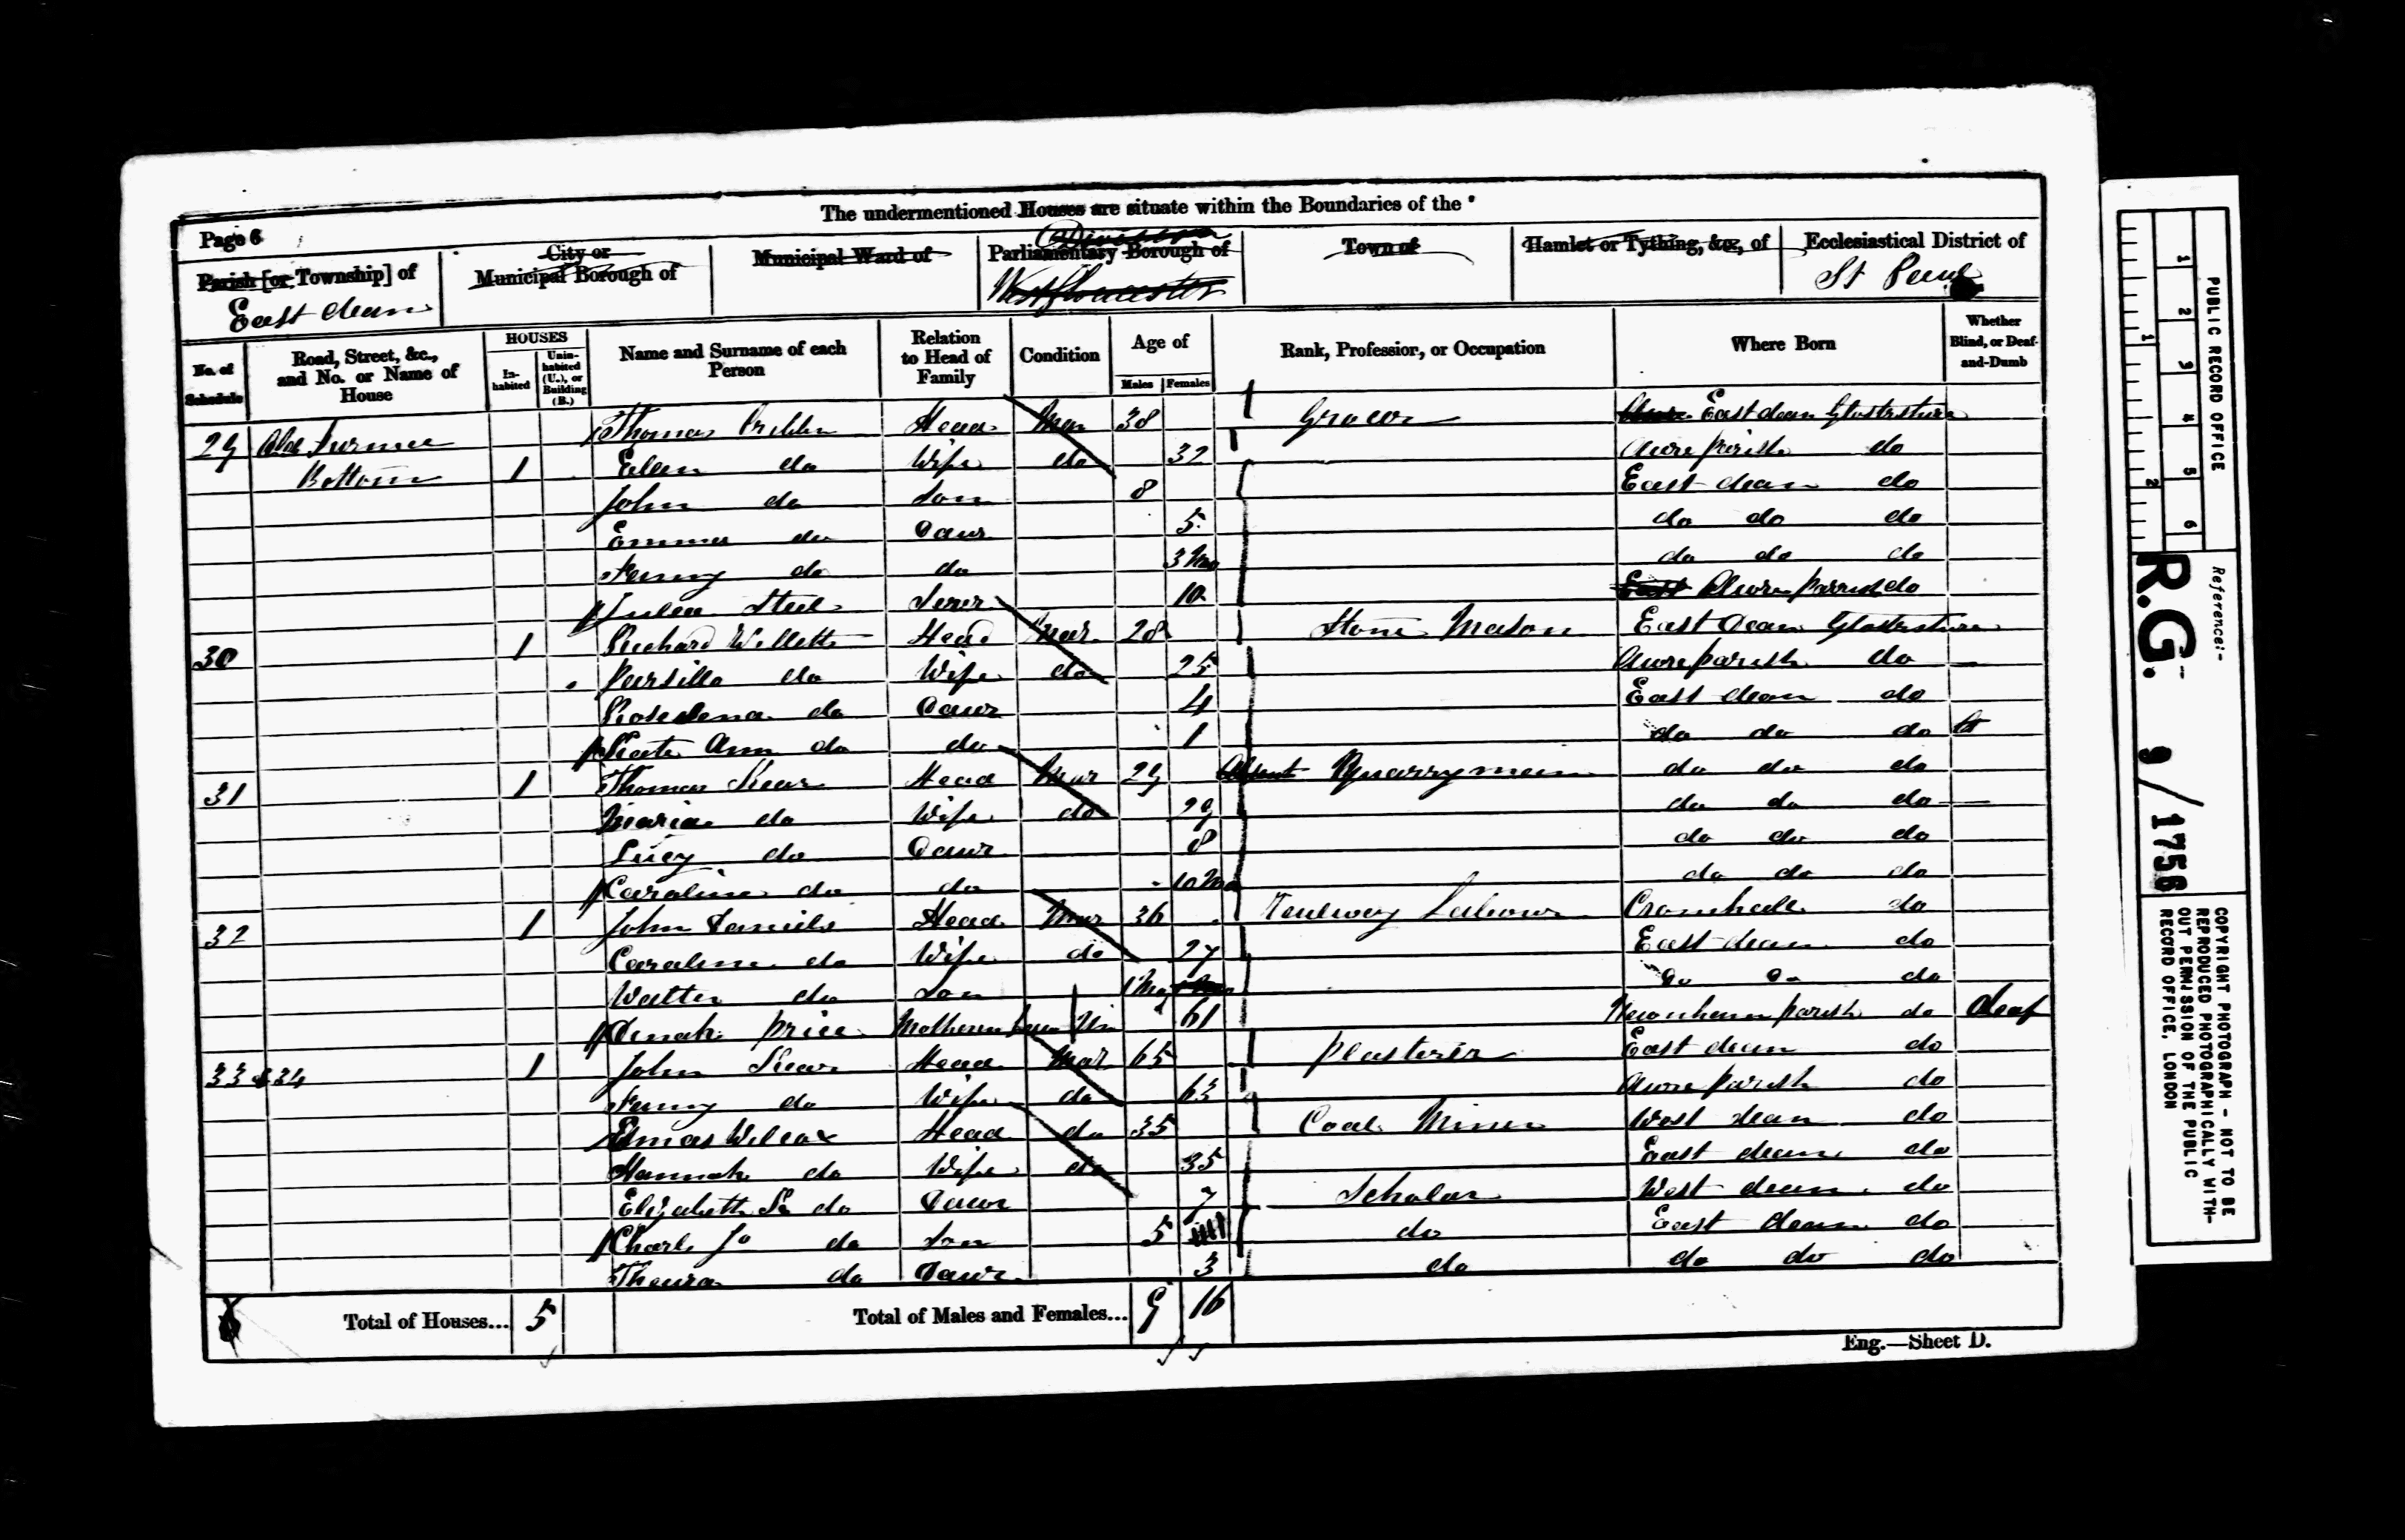 The undermentioned Houses are situate within the Boundaries of the
Page 6
Parish [or Township] of
East dean
City or
Municipal Borough of
Municipal Ward of
Division
Parliamentary Borough of
West Gloucester
Town of
Hamlet or Tything, &c., of
Ecclesiastical District of
St Paul
No. of Schedule
Road, Street, &c., and No. or Name of House
HOUSES
In-habited
Unin-habited (U.), or Building (B.)
Name and Surname of each Person
Relation to Head of Family
Condition
Age of
Males
Females
Rank, Profession, or Occupation
Where Born
Whether Blind, or Deaf-and-Dumb
29 Old Furnace Thomas Head Mar 38 East dean
Bottom 1 Ellen do Wife do 32 Awre parish do
John do Son 8 East dean do
Emma do Daur 5 do do do
Fanny do do 3 Mo do do do
Steel 10 East Awre parrish do
30 1 Richard Willetts Head Mar 28 Stone Mason East Dean
do Wife do 25 Awre parish do
do Daur 4 East dean do
Kate Ann do do 1 do do do
31 1 Thomas Kear Head Mar 29 Quarryman do do do
Maria do Wife do 29 do do do
Lucy do Daur 8 do do do
Caroline do do 10 Mo do do do
32 1 John Daniels Head Mar 36 Railway Labour Cromhall do
Caroline do Wife do 27 East dean do
Walter do Son 1 Mo do do do
Dinah Price 61 Newnham parish do deaf
33 & 34 1 John Kear Head Mar 65 Plasterer East dean do
Fanny do Wife do 63 Awre parish do
Wilcox Head do 35 Coal Miner West dean do
Hannah do Wife do 35 East dean do
Elizabeth do Daur 7 Scholar West dean do
Charls Jo do Son 5 do East dean do
do Daur 3 do do do do
Total of Houses... 5
Total of Males and Females... 9 16
Eng.—Sheet D.
PUBLIC RECORD OFFICE
1 2 3 4 5 6
1 2
Reference:-
R.G. 9/1756
COPYRIGHT PHOTOGRAPH - NOT TO BE
REPRODUCED PHOTOGRAPHICALLY WITH-
OUT PERMISSION OF THE PUBLIC
RECORD OFFICE, LONDON